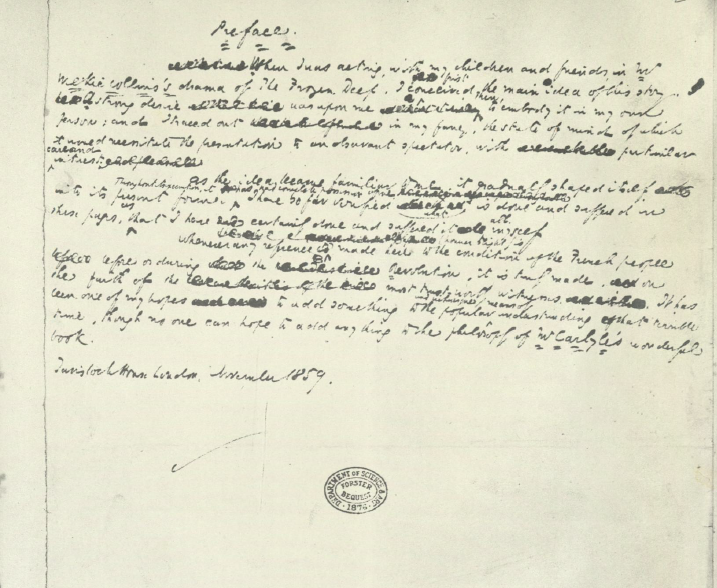 Preface.
When I was acting, with my children and friends, in Mr
Wilkie Collins's drama of The Frozen Deep, I first conceived the main idea of this story.
A strong desire was upon me then, to embody it in my own
person; and I traced out in my fancy, the state of mind of which
it would necessitate the presentation to an observant spectator, with particular
care and
interest.
As the idea became familiar to me, it gradually shaped itself
into its present form. Throughout its execution, it has had complete possession of me: I have so far verified what is done and suffered in
these pages, that I have certainly done and suffered it all myself.
Whenever any reference is made here to the condition of the French people
before or during the Revolution, it is truly made, on
the faith of the most trustworthy witnesses. It has
been one of my hopes to add something to the popular and picturesque means of understanding that terrible
time, though no one can hope to add anything to the philosophy of Mr Carlyle's wonderful
book.
Tavistock House London, November 1859.
DEPARTMENT OF SCIENCE & ART
FORSTER
BEQUEST
1876